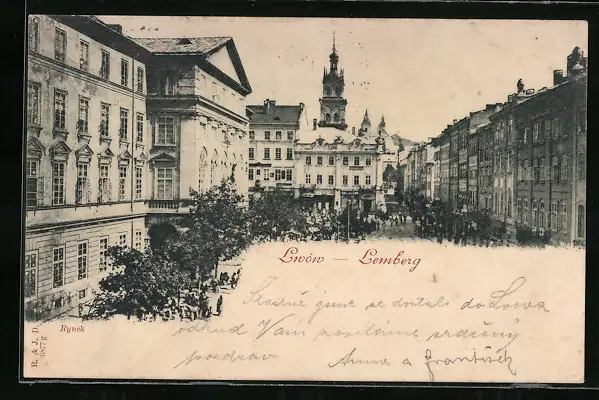 Lwów — Lemberg
Rynek
R. & J. D.
Šťastně jsme se dostali do Lvova
odkud Vám posíláme srdečný
pozdrav Anna a František